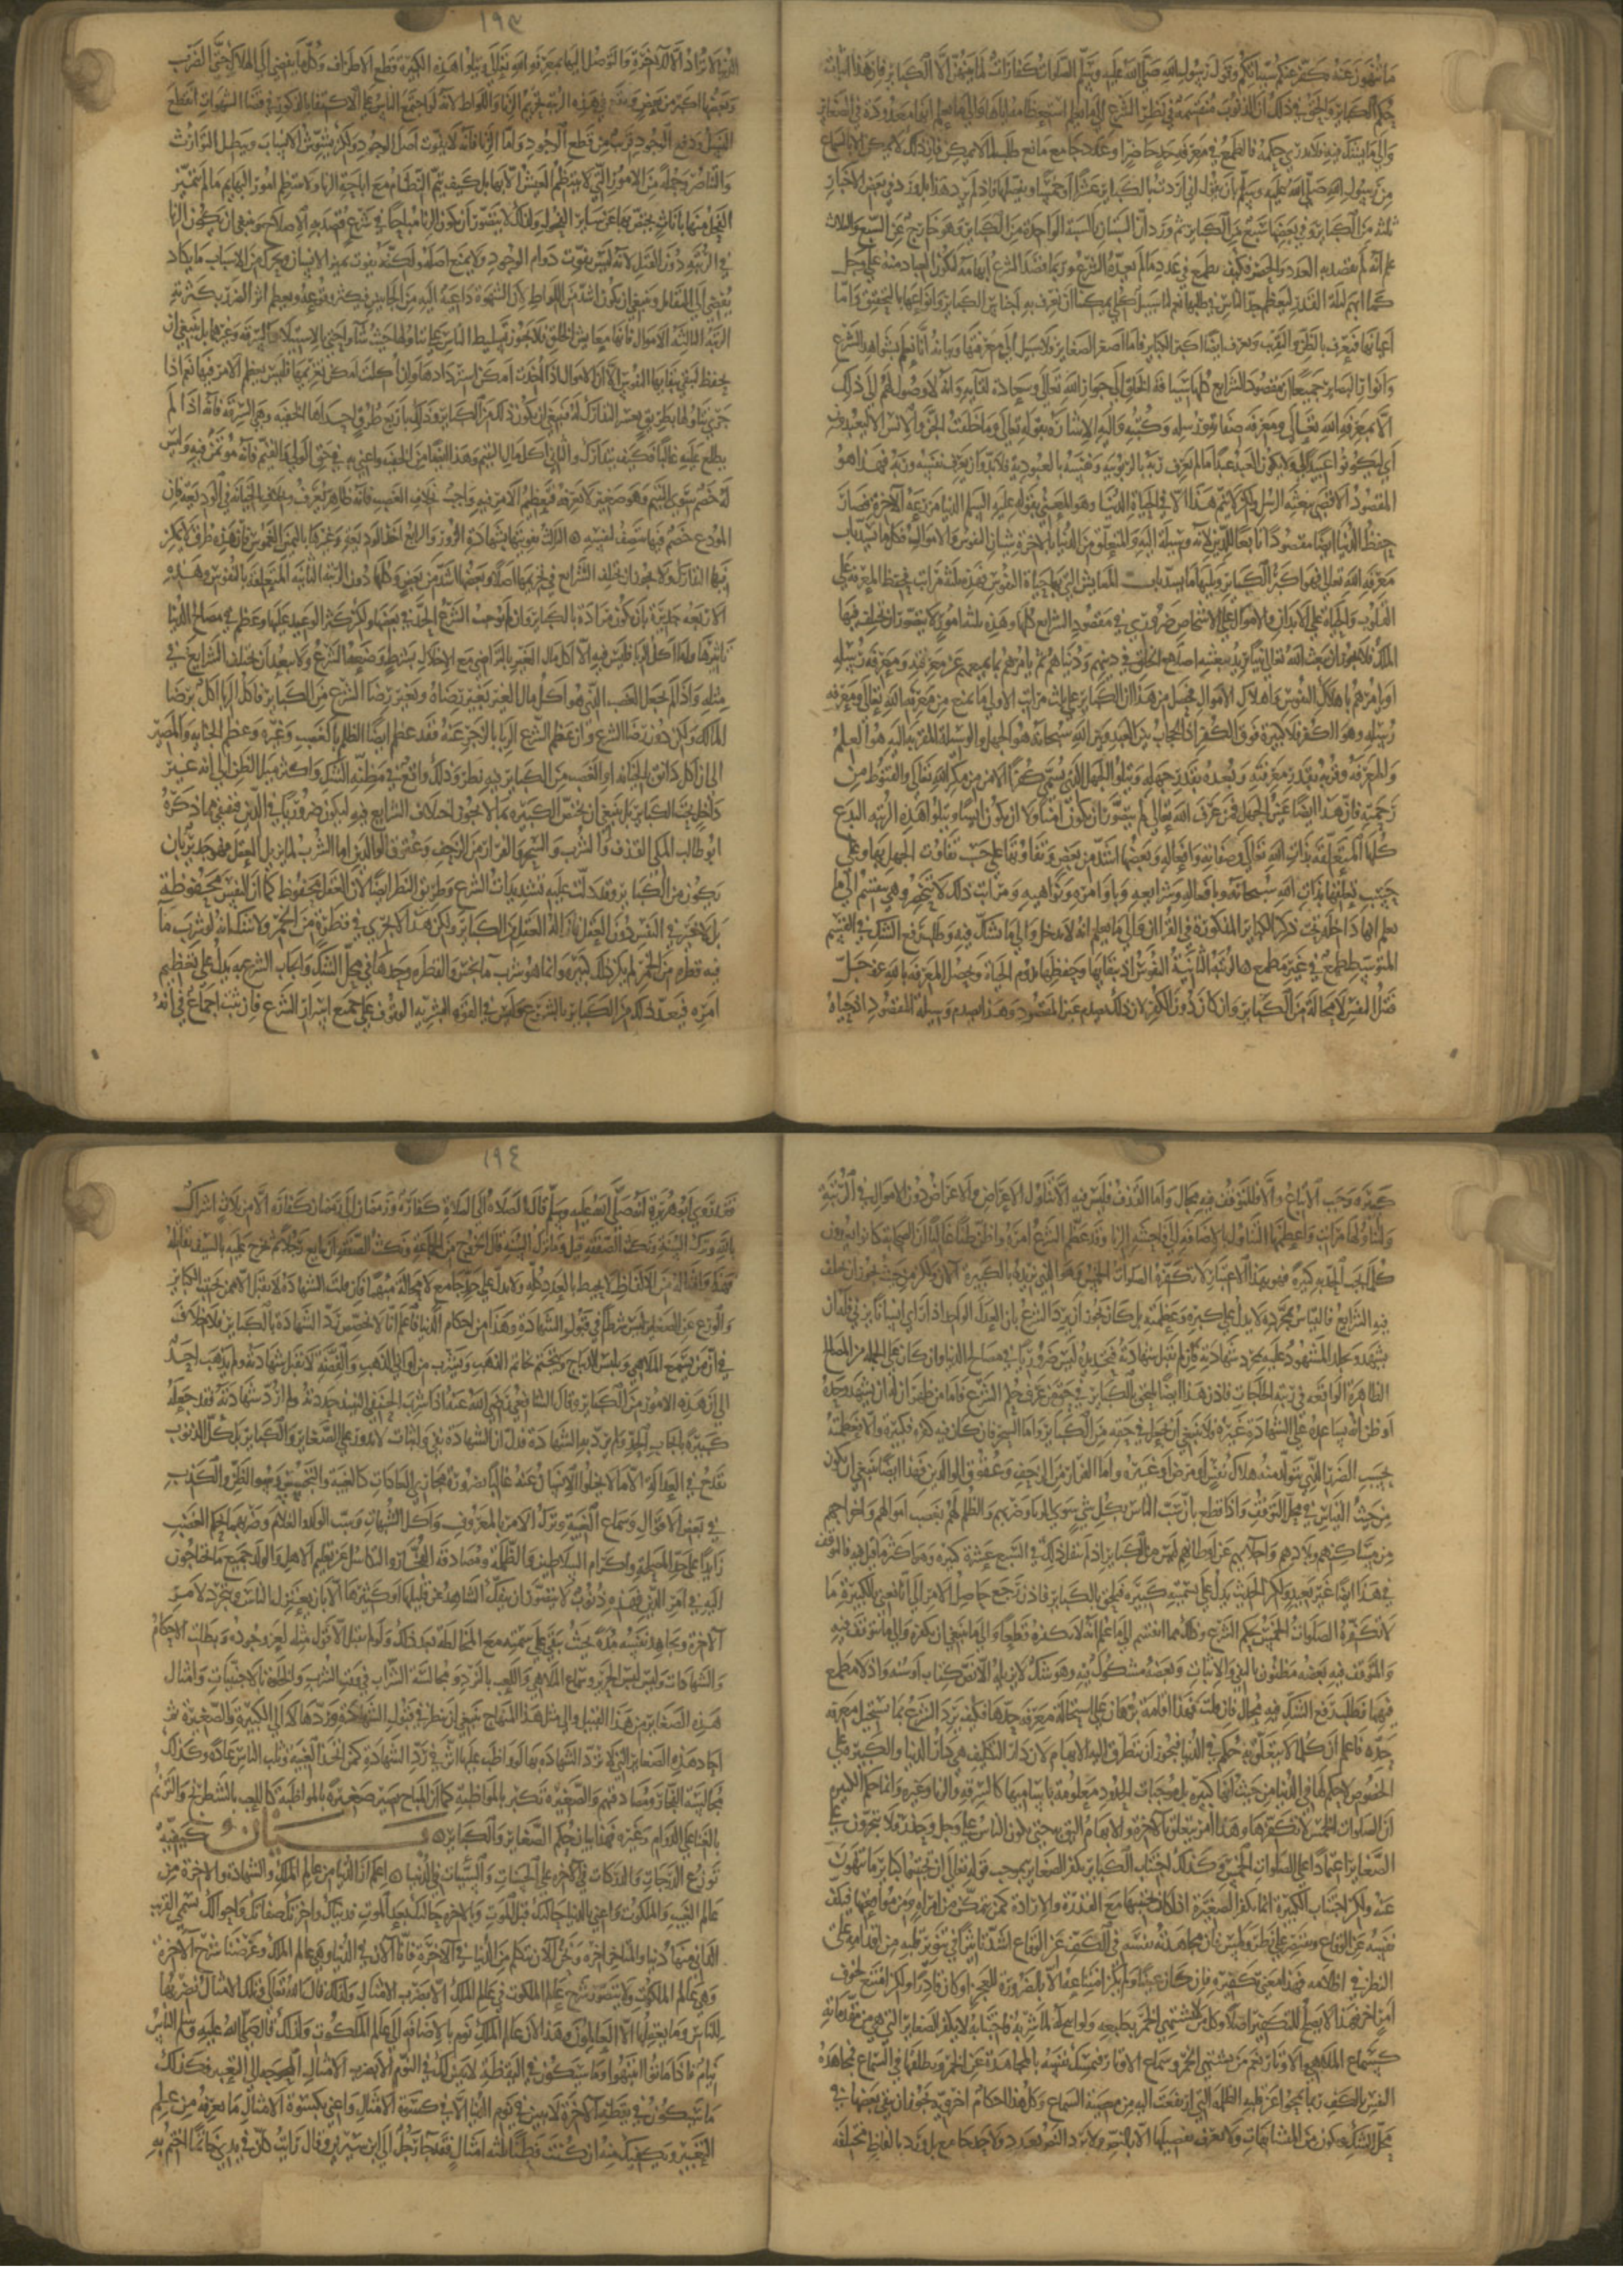 ما تنهون عنه نكفر عنكم سيئاتكم وقول رسول الله صلى الله عليه وسلم الصلوات كفارات لما بينهن الا الكباير فان هذا اثبات
حكم الكباير والحق في ذلك ان الذنوب منقسمة في نظر الشرع الى ما يعلم استعظامه اياها والى ما يعلم انها معدودة في الصغاير
والى ما يشك فيه فلا يدرى حكمه فالطمع في معرفة حد حاصر او عدد جامع مانع طلب لما لا يمكن فان ذلك لا يمكن الا بالسماع
من رسول الله صلى الله عليه وسلم بان يقول اني اردت بالكباير عشرا او خمسا ويفصلها فاذا لم يرد هذا بل ورد في بعض الاخبار
ثلاث من الكباير وفي بعضها سبع من الكباير ثم ورد ان السبتان بالسبة الواحدة من الكباير وهو خارج عن السبع والثلاث
علم انه لم يقصد به العدد والحصر فكيف يطمع في عدد ما لم يعده الشرع وربما قصد الشرع ابهامه ليكون العباد منه على وجل
كما ابهم ليلة القدر ليعظم جد الناس في طلبها نعم لنا سبيل كلي يمكننا ان نعرف به اجناس الكباير وانواعها بالتحقيق واما
اعيانها فنعرف بالظن والتقريب ونعرف ايضا اكبر الكباير فاما اصغر الصغاير فلا سبيل الى معرفتها وبيانه انا نعلم بشواهد الشرع
وانوار البصاير جميعا ان مقصود الشرايع كلها سياقة الخلق الى جوار الله تعالى وسعادة لقايه وانه لا وصول لهم الى ذلك
الا بمعرفة الله تعالى ومعرفة صفاته ورسله وكتبه واليه الاشارة بقوله تعالى وما خلقت الجن والانس الا ليعبدون
اي ليكونوا عبيدا لي ولا يكون العبد عبدا ما لم يعرف ربه بالربوبية ونفسه بالعبودية فلا بد وان يعرف نفسه وربه فهذا هو
المقصود الاقصى ببعثة الرسل ولكن لا يتم هذا الا في الحياة الدنيا وهو المعني بقوله عليه السلم الدنيا مزرعة الاخرة فصار
حفظ الدنيا ايضا مقصودا تابعا للدين لانه وسيلة اليه والمتعلق من الدنيا بالاخرة شيان النفوس والاموال فكل ما يسد باب
معرفة الله تعالى فهو اكبر الكباير ويليها ما يسد باب المعايش التي بها حياة النفوس فهذه ثلثة مراتب فحفظ المعرفة على
القلوب والحياة على الابدان والاموال على الاشخاص ضروري في مقصود الشرايع كلها وهذه ثلثة امور لا يتصور ان تختلف فيها
الملل فلا يجوز ان يبعث الله تعالى نبيا يريد ببعثته اصلاح الخلق في دينهم ودنياهم ثم يامرهم بما يمنعهم عن معرفته ومعرفة رسله
او يامرهم باهلاك النفوس واهلاك الاموال فحصل من هذا ان الكباير على ثلث مراتب الاولى ما يمنع من معرفة الله تعالى ومعرفة
رسله وهو الكفر فلا كبيرة فوق الكفر اذ الحجاب بين العبد وبين الله سبحانه هو الجهل والوسيلة المقربة اليه هو العلم
والمعرفة وقربه بقدر معرفته وبعده بقدر جهله ويتلوا الجهل الذي يسمى كفرا الامن من مكر الله تعالى والقنوط من
رحمته فان هذا ايضا عين الجهل فمن عرف الله تعالى لم يتصور ان يكون امنا ولا ان يكون ايسا ويتلوا هذه الرتبة البدع
كلها المتعلقة بذات الله تعالى وصفاته وافعاله وبعضها اشد من بعض وتفاوتها على حسب تفاوت الجهل بها وعلى
حسب تعلقها بذات الله سبحانه وبافعاله وشرايعه وباوامره ونواهيه ومراتب ذلك لا تنحصر وهي تنقسم الى ما
يعلم انها داخلة تحت ذكر الكباير المذكورة في القران والى ما يعلم انه لا يدخل والى ما يشك فيه وطلب رفع الشك في القسم
المتوسط طمع في غير مطمع الرتبة الثانية النفوس اذ ببقايها وحفظها تدوم الحياة وتحصل المعرفة بالله عز وجل
فقتل النفس لا محالة من الكباير وان كان دون الكفر لان ذلك يصدم عين المقصود وهذا يصدم وسيلة المقصود اذ حياة
١٩٣
الدنيا لا تراد الا للاخرة والتوصل اليها بمعرفة الله تعالى ويتلوا هذه الكبيرة قطع الاطراف وكل ما يفضي الى الهلاك حتى الضرب
وبعضها اكبر من بعض ويقع في هذه الرتبة تحريم الزنا واللواط لانه لو اجتمع الناس على الاكتفا بالذكور في قضا الشهوات انقطع
النسل ودفع الوجود قريب من قطع الوجود واما الزنا فانه لا يفوت اصل الوجود ولكن يشوش الانساب ويبطل التوارث
والتناصر وجملة من الامور التي لا ينتظم العيش الا بها بل كيف يتم النظام مع اباحة الزنا ولا تنتظم امور البهايم ما لم يتميز
الفحل منها باناث يختص بها عن ساير الفحول ولذلك لا يتصور ان يكون الزنا مباحا في شرع قصد به الاصلاح وينبغي ان يكون الزنا
في الرتبة دون القتل لانه ليس يفوت دوام الوجود ولا يمنع اصله ولكنه يفوت تمييز الانساب ويحرك من الاسباب ما يكاد
يفضي الى التقاتل وينبغي ان يكون اشد من اللواط لان الشهوة داعية اليه من الجانبين فيكثر وقوعه ويعظم اثر الضرر بكثرته
الرتبة الثالثة الاموال فانها معايش الخلق فلا يجوز تسليط الناس على تناولها حيث شاوا حتى بالاستيلاء والسرقة وغيرهما بل ينبغي ان
يحفظ لتبقى ببقايها النفوس الا ان الاموال اذا اخذت امكن استردادها وان اكلت امكن تغريمها فليس يعظم الامر فيها نعم اذا
جرى تناولها بطريق يعسر التدارك له فينبغي ان يكون ذلك من الكباير وذلك باربع طرق احداها الخفية وهي السرقة فانه اذا لم
يطلع عليه غالبا فكيف يتدارك والثاني اكل مال اليتيم وهذا ايضا من الخفية واعني به في حق الولي والقيم فانه مؤتمن فيه وليس
له خصم سوى اليتيم وهو صغير لا يعرفه فتعظيم الامر فيه واجب بخلاف الغصب فانه ظاهر يعرف وبخلاف الخيانة في الوديعة فان
المودع خصم فيها ينتصف لنفسه الثالث تفويتها بشهادة الزور والرابع اخذ الوديعة وغيرها باليمين الغموس فان هذه طرق لا يمكن
فيها التدارك ولا يجوز ان يختلف الشرايع في تحريمها اصلا وبعضها اشد من بعض وكلها دون الرتبة الثانية المتعلقة بالنفوس وهذه
الاربعة جديرة بان تكون مرادة بالكباير وان لم يوجب الشرع الحد في بعضها ولكن كثر الوعيد عليها وعظم في مصالح الدنيا
تاثيرها واما اكل الربا فليس فيه الا اكل مال الغير بالتراضي مع الاخلال بشرط وضعه الشرع ولا يبعد ان تختلف الشرايع في
مثله واذا لم يجعل الغصب الذي هو اكل مال الغير بغير رضاه وبغير رضا الشرع من الكباير فاكل الربا اكل برضا
المالك ولكن دون رضا الشرع وان عظم الشرع الربا بالزجر عنه فقد عظم ايضا الظلم بالغصب وغيره وعظم الخيانة والمصير
الى ان اكل دانق بالخيانة او الغصب من الكباير فيه نظر وذلك واقع في مظنة الشك واكثر ميل الظن الى انه غير
داخل تحت الكباير بل ينبغي ان تختص الكبيرة بما لا يجوز اختلاف الشرايع فيه ليكون ضروريا في الدين فيبقى مما ذكره
ابو طالب المكي القذف والشرب والسحر والفرار من الزحف وعقوق الوالدين اما الشرب لما يزيل العقل فهو جدير بان
يكون من الكباير وقد دلت عليه تشديدات الشرع وطريق النظر ايضا لان العقل محفوظ كما ان النفس محفوظة
بل لا خير في النفس دون العقل فازالة العقل من الكباير ولكن هذا لا يجري في قطرة من الخمر ولا شك انه لو شرب ما
فيه قطرة من الخمر لم يكن ذلك كبيرة وانما هو شرب ما نجس والقطرة وحدها في محل الشك وايجاب الشرع به يدل على تعظيم
امره فيعد ذلك من الكباير بالشرع وليس في القوة البشرية الوقوف على جميع اسرار الشرع فان ثبت اجماع في انه
كبيرة وجب الاتباع والا فللتوقف فيه مجال واما القذف فليس فيه الا تناول الاعراض والاعراض دون الاموال في الرتبة
ولتناولها مراتب واعظمها التناول بالاضافة الى فاحشة الزنا وقد عظم الشرع امره واظن ظنا غالبا ان الصحابة كانوا يعدون
كل ما يجب الحد به كبيرة فهو بهذا الاعتبار لا تكفره الصلوات الخمس وهو الذي نريده بالكبيرة الان ولكن من حيث يجوز ان تختلف
فيه الشرايع فالقياس بمجرده لا يدل على كبره وعظمته بل كان يجوز ان يرد الشرع بان العدل الواحد اذا راى انسانا يزني فله ان
يشهد ويجلد المشهود عليه بمجرد شهادته فان لم تقبل شهادته فحده ليس ضروريا في مصالح الدنيا وان كان على الجملة من المصالح
الظاهرة الواقعة في رتبة الحاجات فاذن هذا ايضا يلحق بالكباير في حق من عرف حكم الشرع فاما من ظن ان له ان يشهد وحده
او ظن انه يساعده على الشهادة غيره فلا ينبغي ان يجعل في حقه من الكباير واما السحر فان كان فيه كفر فكبيرة والا فعظمته
بحسب الضرر الذي يتولد منه هلاك نفس او مرض او غيره واما الفرار من الزحف وعقوق الوالدين فهذا ايضا ينبغي ان يكون
من حيث القياس في محل التوقف واذا قطع بان سب الناس بكل شي سوى الزنا وضربهم والظلم لهم بغصب اموالهم واخراجهم
من مساكنهم وبلادهم واجلايهم عن اوطانهم ليس من الكباير اذ لم ينقل ذلك في السبع عشرة كبيرة وهو اكثر ما قيل فيه فالتوقف
في هذا ايضا غير بعيد ولكن الحديث يدل على تسميته كبيرة فليلحق بالكباير فاذن رجع حاصل الامر الى انا نعني بالكبيرة ما
لا تكفره الصلوات الخمس بحكم الشرع وذلك مما انقسم الى ما علم انه لا يكفره قطعا والى ما ينبغي ان يكفره والى ما يتوقف فيه
والمتوقف فيه بعضه مظنون بالنفي والاثبات وبعضه مشكوك فيه وهو شك لا يزيله الا نص كتاب او سنة واذ لا مطمع
فيهما فطلب رفع الشك فيه محال فان قلت فهذا اقامة برهان على استحالة معرفة حدها فكيف يرد الشرع بما يستحيل معرفة
حده فاعلم ان كل ما لا يتعلق به حكم في الدنيا فيجوز ان يتطرق اليه الابهام لان دار التكليف هي دار الدنيا والكبيرة على
الخصوص لا حكم لها في الدنيا من حيث انها كبيرة بل موجبات الحدود معلومة باساميها كالسرقة والزنا وغيره وانما حكم الكبيرة
ان الصلوات الخمس لا تكفرها وهذا امر يتعلق بالاخرة والابهام اليق به حتى يكون الناس على وجل وحذر فلا يتجرون على
الصغاير اعتمادا على الصلوات الخمس وكذلك اجتناب الكباير يكفر الصغاير بموجب قوله تعالى ان تجتنبوا كباير ما تنهون
عنه ولكن اجتناب الكبيرة انما يكفر الصغيرة اذا كان اجتنبها مع القدرة والارادة كمن يتمكن من امراة ومن مواقعتها فيكف
نفسه عن الوقاع ويقتصر على نظر ولمس فان مجاهدته نفسه في الكف عن الوقاع اشد تاثيرا في تنوير قلبه من اقدامه على
النظر في اظلامه فهذا معنى تكفيره فان كان عنينا ولم يكن امتناعه الا بالضرورة للعجز او كان قادرا ولكن امتنع لخوف
امر اخر فهذا لا يصلح للتكفير اصلا وكل من لا يشتهي الخمر بطبعه ولو ابيح له لما شربه فاجتنابه لا يكفر الصغاير التي هي من مقدماته
كسماع الملاهي والاوتار نعم من يشتهي الخمر وسماع الاوتار فيمسك نفسه بالمجاهدة عن الخمر ويطلقها في السماع فمجاهدة
النفس بالكف ربما يمحوا عن قلبه الظلمة التي ارتفعت اليه من معصية السماع وكل هذا احكام اخروية فيجوز ان يبقى بعضها في
محل الشك ويكون من المتشابهات ولا يعرف تفصيلها الا بالنص ولم يرد النص بعدد ولا حد جامع بل ورد بالفاظ مختلفة
١٩٤
فقد روى ابو هريرة انه صلى الله عليه وسلم قال الصلاة الى الصلاة كفارة ورمضان الى رمضان كفارة الا من ثلاث اشراك
بالله وترك السنة ونكث الصفقة قيل وما ترك السنة قال الخروج من الجماعة ونكث الصفقة ان يبايع رجلا ثم يخرج عليه بالسيف يقاتله
فهذا وامثاله من الالفاظ لا يحيط بالعدد كله ولا يدل على حد جامع لا محالة مبهما فان قلت الشهادة لا تقبل الا ممن يجتنب الكباير
والورع عن الصغاير ليس شرطا في قبول الشهادة وهذا من احكام الدنيا فاعلم انا لا نخصص رد الشهادة بالكباير فلا خلاف
في ان من يسمع الملاهي ويلبس الديباج ويتختم بخاتم الذهب ويشرب من اواني الذهب والفضة لا تقبل شهادته ولم يذهب احد
الى ان هذه الامور من الكباير وقال الشافعي رضي الله عنه اذا شرب الحنفي النبيذ حددته ولم ارد شهادته فقد جعله
كبيرة بايجاب الحد ولم يرد به الشهادة فدل ان الشهادة نفيا واثباتا لا يدور على الصغاير والكباير بل كل الذنوب
تقدح في العدالة الا ما لا يخلوا الانسان عنه غالبا بضرورة مجاري العادات كالغيبة والتجسس وسوء الظن والكذب
في بعض الاقوال وسماع الغيبة وترك الامر بالمعروف واكل الشبهات وسب الولد والغلام وضربهما بحكم الغضب
زايدا على حد المصلحة واكرام السلاطين والظلمة ومصادقة الفجار والتكاسل عن تعليم الاهل والولد جميع ما يحتاجون
اليه في امر الدين فهذه ذنوب لا يتصور ان ينفك الشاهد عن قليلها او كثيرها الا بان يعتزل الناس ويتجرد لامر
الاخرة ويجاهد نفسه مدة بحيث يبقى على سمته مع المخالطة بعد ذلك ولو لم يقبل الا قول مثله لعز وجوده وبطلت الاحكام
والشهادات وليس لبس الحرير وسماع الملاهي واللعب بالنرد ومجالسة الشراب في وقت الشرب والخلوة بالاجنبيات وامثال
هذه الصغاير من هذا القبيل والى مثل هذا المنهاج ينبغي ان ينظر في قبول الشهادة وردها لا الى الكبيرة والصغيرة ثم
احاد هذه الصغاير التي لا ترد الشهادة بها لو واظب عليها اثر في رد الشهادة كمن اتخذ الغيبة وثلب الناس عادة وكذلك
مجالسة الفجار ومصادقتهم والصغيرة تكبر بالمواظبة كما ان المباح يصير صغيرة بالمواظبة كاللعب بالشطرنج والترنم
بالغنا على الدوام وغيره فهذا بيان حكم الصغاير والكباير بيان كيفية
توزع الدرجات والدركات في الاخرة على الحسنات والسيئات في الدنيا اعلم ان الدنيا من عالم الملك والشهادة والاخرة من
عالم الغيب والملكوت واعني بالدنيا حالتك قبل الموت وبالاخرة حالتك بعد الموت فدنياك واخرتك صفاتك واحوالك يسمى القريب
الداني منها دنيا والمتاخر اخرة ونحن الان نتكلم من الدنيا في الاخرة فانا الان في الدنيا وهي عالم الملك وغرضنا شرح الاخرة
وهي عالم الملكوت ولا يتصور شرح عالم الملكوت في عالم الملك الا بضرب الامثال ولذلك قال الله تعالى وتلك الامثال نضربها
للناس وما يعقلها الا العالمون وهذا لان عالم الملك نوم بالاضافة الى عالم الملكوت ولذلك قال صلى الله عليه وسلم الناس
نيام فاذا ماتوا انتبهوا وما سيكون في اليقظة لا يتبين لك في النوم الا بضرب الامثال المحوجة الى التعبير فكذلك
ما سيكون في يقظة الاخرة لا يتبين في نوم الدنيا الا في كسوة الامثال واعني بكسوة الامثال ما تعرفه من علم
التعبير ويكفيك منه ان كنت فطنا ثلثة امثال فقد جا رجل الى ابن سيرين وقال رايت كان في يدي خاتما اختم به